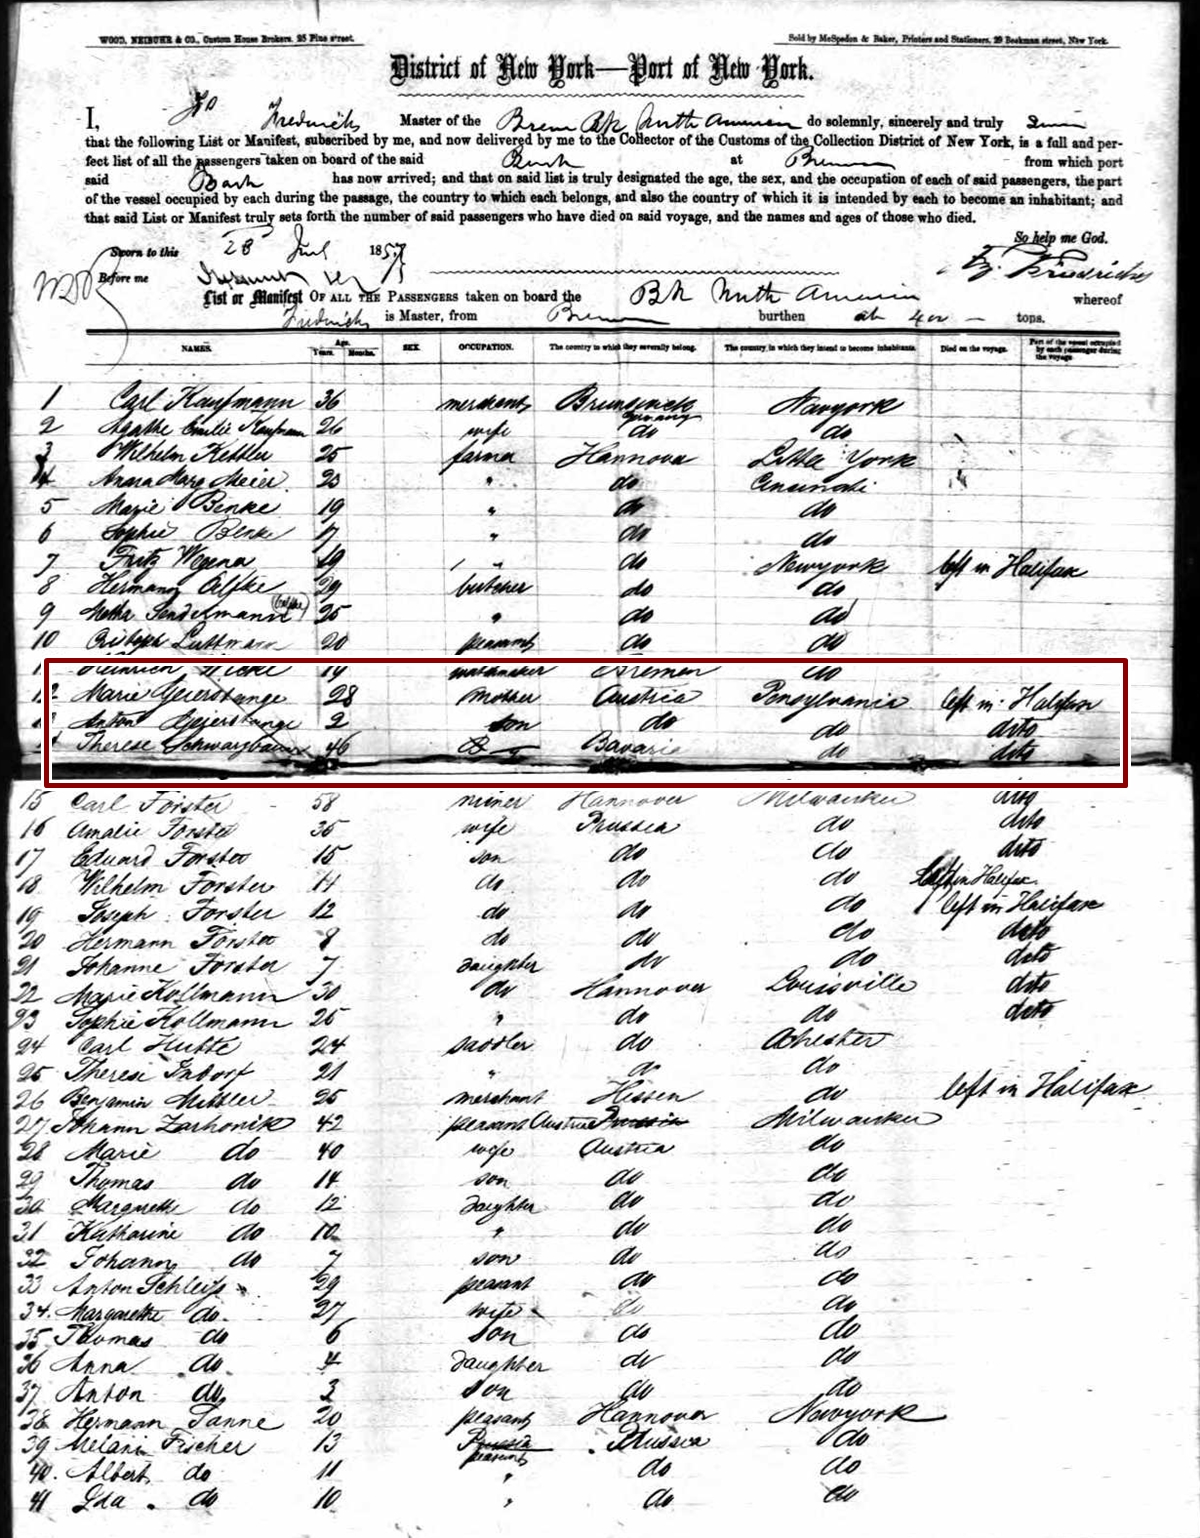 WOOD, NEIBUHR & CO., Custom House Brokers, 25 Pine street.
Sold by McSpedon & Baker, Printers and Stationers, 29 Beekman street, New York.
District of New York—Port of New York.
I, Fredericks Master of the Brem Bk North American do solemnly, sincerely and truly
that the following List or Manifest, subscribed by me, and now delivered by me to the Collector of the Customs of the Collection District of New York, is a full and per-
fect list of all the passengers taken on board of the said Bark at Bremen from which port
said Bark has now arrived; and that on said list is truly designated the age, the sex, and the occupation of each of said passengers, the part
of the vessel occupied by each during the passage, the country to which each belongs, and also the country of which it is intended by each to become an inhabitant; and
that said List or Manifest truly sets forth the number of said passengers who have died on said voyage, and the names and ages of those who died.
So help me God.
Sworn to this 28 1857
Before me
List or Manifest OF ALL THE PASSENGERS taken on board the Bk North American whereof
Fredericks is Master, from Bremen burthen tons.
NAMES. Age. Years. Months. SEX. OCCUPATION. The country to which they severally belong. The country in which they intend to become inhabitants. Died on the voyage. Part of the vessel occupied by each passenger during the voyage
1 Carl Kaufmann 36 merchant Brunswick Newyork
Germany
2 Agathe Emilie Kaufmann 26 wife do do
3 Wilhelm Kettler 25 farmer Hannover Little York
4 Anna Marg Meier 23 " do Cincinati
5 Marie Benke 19 " do do
6 Sophie Benke 17 " do do
7 Fritz Wegener 19 " do Newyork left in Halifax
8 Hermann Alfke 29 butcher do do
9 Metha Sendelmann 25 " do do
10 Luttmann 20 peasant do do
11 Heinrich 19 Bremen do
12 Marie Geierstange 28 mother Austria Pensylvania left in Halifax
13 Anton Geierstange 2 son do do ditto
14 Therese Schwarzbauer 46 Bavaria do ditto
15 Carl Forster 58 miner Hannover Milwaukee ditto
16 Amalie Forster 35 wife Prussia do ditto
17 Eduard Forster 15 son do do ditto
18 Wilhelm Forster 14 do do do left in Halifax
19 Joseph Forster 12 do do do left in Halifax
20 Hermann Forster 8 do do do ditto
21 Johanne Forster 7 daughter do do ditto
22 Marie Kollmann 30 do Hannover Louisville ditto
23 Sophie Kollmann 25 " do do ditto
24 Carl Hutte 24 saddler do Chester
25 Therese Indorf 21 " do do
26 Benjamin Mittler 25 merchant Hessen do left in Halifax
27 Johann Zarhonik 42 peasant Austria Prussia Milwaukee
28 Marie do 40 wife Austria do
29 Thomas do 14 son do do
30 Margarethe do 12 daughter do do
31 Katharine do 10 " do do
32 Johann do 7 son do do
33 Anton Schleiss 29 peasant do do
34 Margarethe do 27 wife do do
35 Thomas do 6 son do do
36 Anna do 4 daughter do do
37 Anton do 3 son do do
38 Hermann Tanne 20 peasant Hannover Newyork
39 Melani Fischer 13 Prussia Prussia do
peasant
40 Albert do 11 " do do
41 Ida do 10 " do do